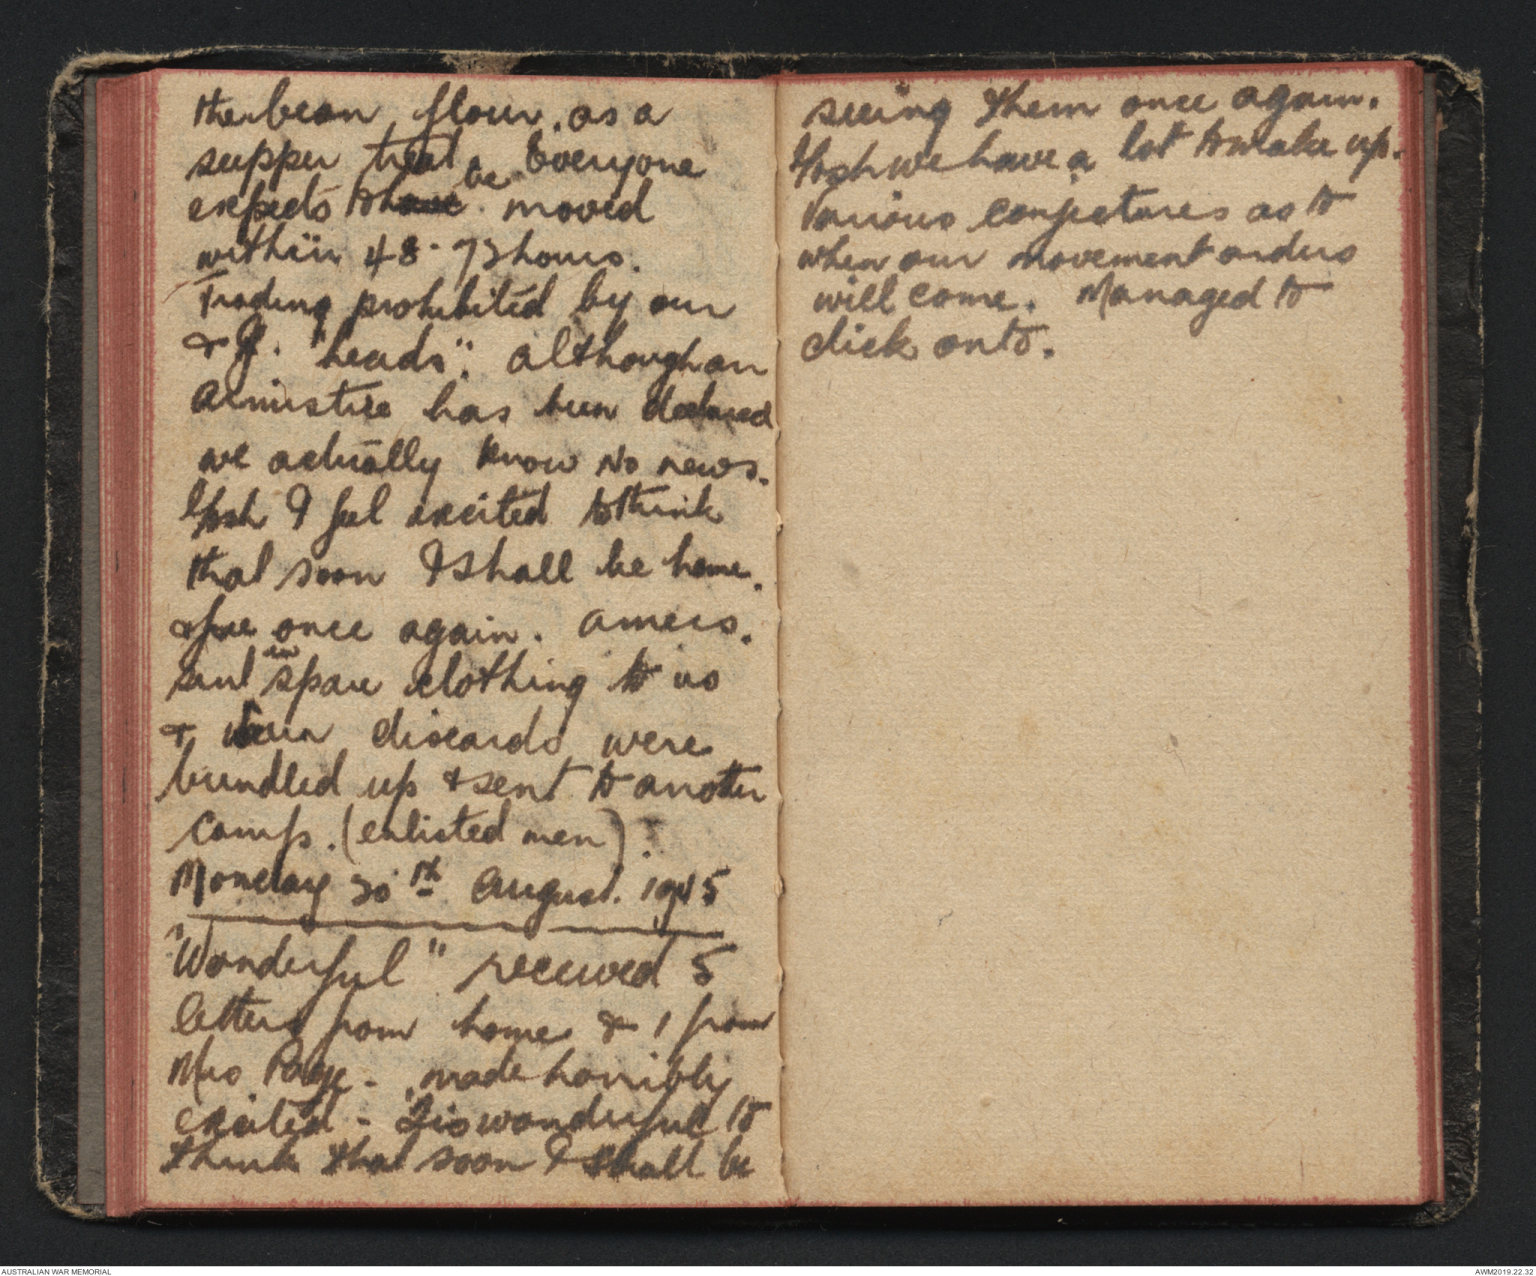 the bean flour, as a
supper treat. Everyone
expects to have be moved
within 48-72 hours.
Trading prohibited by our
& J. "heads". Although an
Armistice has been declared
we actually know no news.
Gosh I feel excited to think
that soon I shall be home.
& free once again. Amers.
sent in spare clothing to us
& discards were
bundled up & sent to another
camp. (enlisted men).
Monday 20th August. 1945
"Wonderful" received 5
letters from home & 1 from
Mrs Page - made horribly
excited - Tis wonderful to
think that soon I shall be
seeing them once again.
Gosh we have a lot to make up.
Various conjectures as to
when our movement orders
will come. Managed to
click onto.
AUSTRALIAN WAR MEMORIAL
AWM2019.22.32